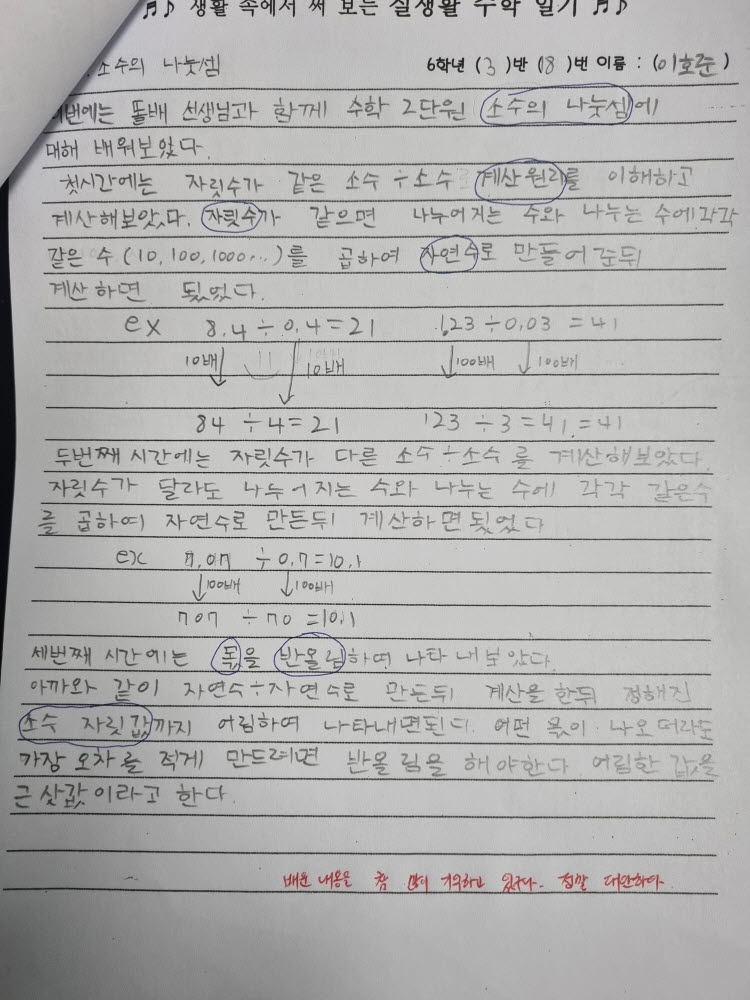 ♬♪ 생활 속에서 써 보는 실생활 수학 일기 ♬♪
소수의 나눗셈 6학년 (3)반 (18)번 이름 : (이호준)
번에는 똘배 선생님과 함께 수학 2단원 소수의 나눗셈에
대해 배워보았다.
첫시간에는 자릿수가 같은 소수÷소수 계산원리를 이해하고
계산해보았다. 자릿수가 같으면 나누어지는 수와 나누는 수에각각
같은 수 (10,100,1000...)를 곱하여 자연수로 만들어 준뒤
계산하면 됬었다.
ex 8.4÷0.4=21 1.23÷0.03 =41
10배 10배 100배 100배
84 ÷4=21 123 ÷3=41.=41
두번째 시간에는 자릿수가 다른 소수÷소수를 계산해보았다
자릿수가 달라도 나누어지는 수와 나누는 수에 각각 같은수
를 곱하여 자연수로 만든뒤 계산하면됬었다
ex 7.07 ÷0.7=10.1
100배 100배
707 ÷70 =10.1
세번째 시간에는 몫을 반올림하여 나타내보았다.
아까와 같이 자연수÷자연수로 만든뒤 계산을 한뒤 정해진
소수 자릿값까지 어림하여 나타내면된다. 어떤 몫이 나오더라도
가장 오차를 적게 만드려면 반올림을 해야한다 어림한 값을
근삿값이라고 한다.
배운 내용을 참 많이 기억하고 있구나. 정말 대단하다